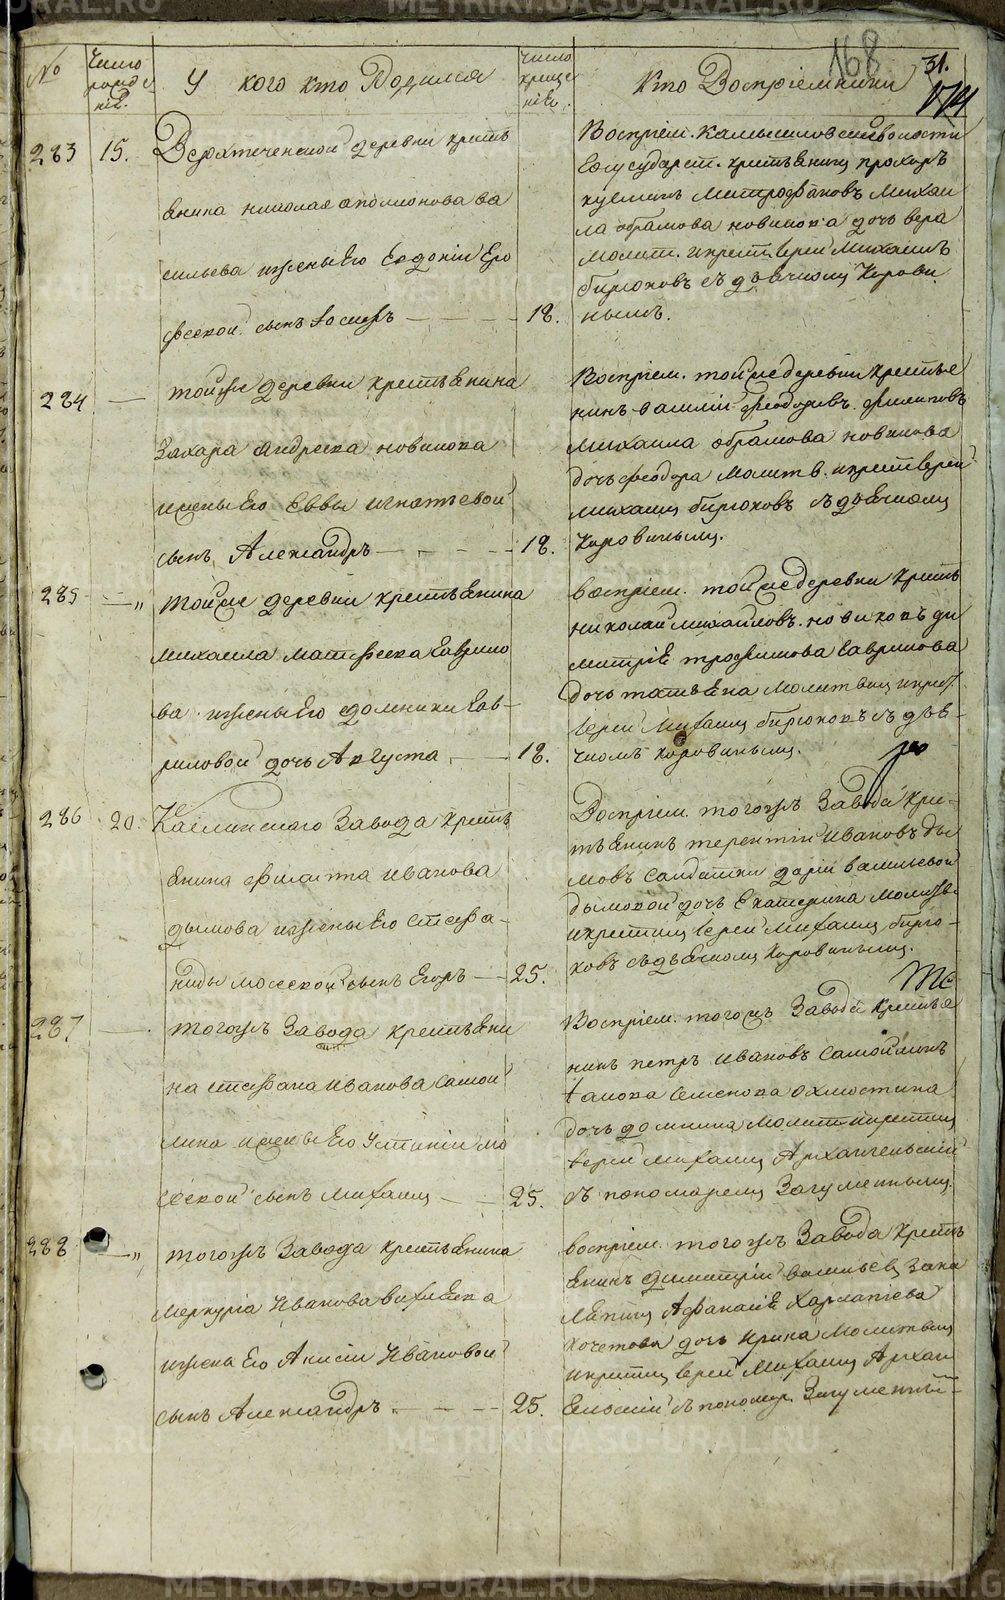 168
31.
№
Число рожденiе.
У кого кто Родился
число крщенiе.
Кто Воспрiемники
283
15.
Верхтеченской деревни кресть
янина николая
сильева жены Его Евдокiи Еро
феевой сынъ Iосифъ
18.
Воспрiем. Камышловской волости
Государст. крестьянинъ прохоръ
Митрофановъ Михаи
ла абрамова новикова дочь вера
молит. и крест. iерей Михаилъ
бирюковъ съ дьячкомъ Корови
нымъ.
284
тойже деревни крестьянина
Захара андреева новикова
жены Его Еввы игнатьевой
сынъ Александръ
18.
Воспрiем. тойже деревни крестья
нинъ василiй феодоровъ филиповъ
михаила абрамова новикова
дочь феодора молитв. и крест iерей
михаилъ бирюковъ съ дьячкомъ
Коровинымъ.
285
тойже деревни крестьянина
михаила матфеева Гаврило
ва жены Его домники Гав-
риловой дочь Августа
18.
воспрiем. тойже деревни кресть
николай михайловъ новиковъ ди
митрiя трофимова Гаврилова
дочь татьяна молитвилъ и крест.
iерей Михаилъ бирюковъ съ дья-
чкомъ Коровинымъ.
286
20.
Каслинскаго Завода кресть
янина филиппа иванова
дымова жены Его Стефа-
ниды мосеевой сынъ Егоръ
25.
Воспрiем. тогожъ Завода кре-
стьянинъ терентiй Ивановъ ды
мовъ солдатки дарiи васильевой
дымовой дочь Екатерина молитв.
и крестилъ iерей Михаилъ бирю-
ковъ съ дьячкомъ Коровинымъ.
287
тогожъ Завода крестьяни
на стефана иванова самой
лина жены Его Устинiи мо
сеевой сынъ михаилъ
25.
Воспрiем. тогожъ Завода крестья
нинъ петръ ивановъ самойлинъ
iакова семенова охмостина
дочь домника молит и крестилъ
iерей михаилъ Архангельскiй
съ пономаремъ Загуменнымъ.
288
тогожъ Завода крестьянина
меркурiа Иванова
жена Его Анисiи Ивановой
сынъ Александръ
25.
воспрiем. тогожъ Завода кресть
янинъ димитрiй васильевъ
Афанасiя Харлапiева
кочетова дочь ирина молитвилъ
и крестилъ iерей Михаилъ Архан
гельскiй съ пономар. Загуменны-
METRIKI.GASO-URAL.RU